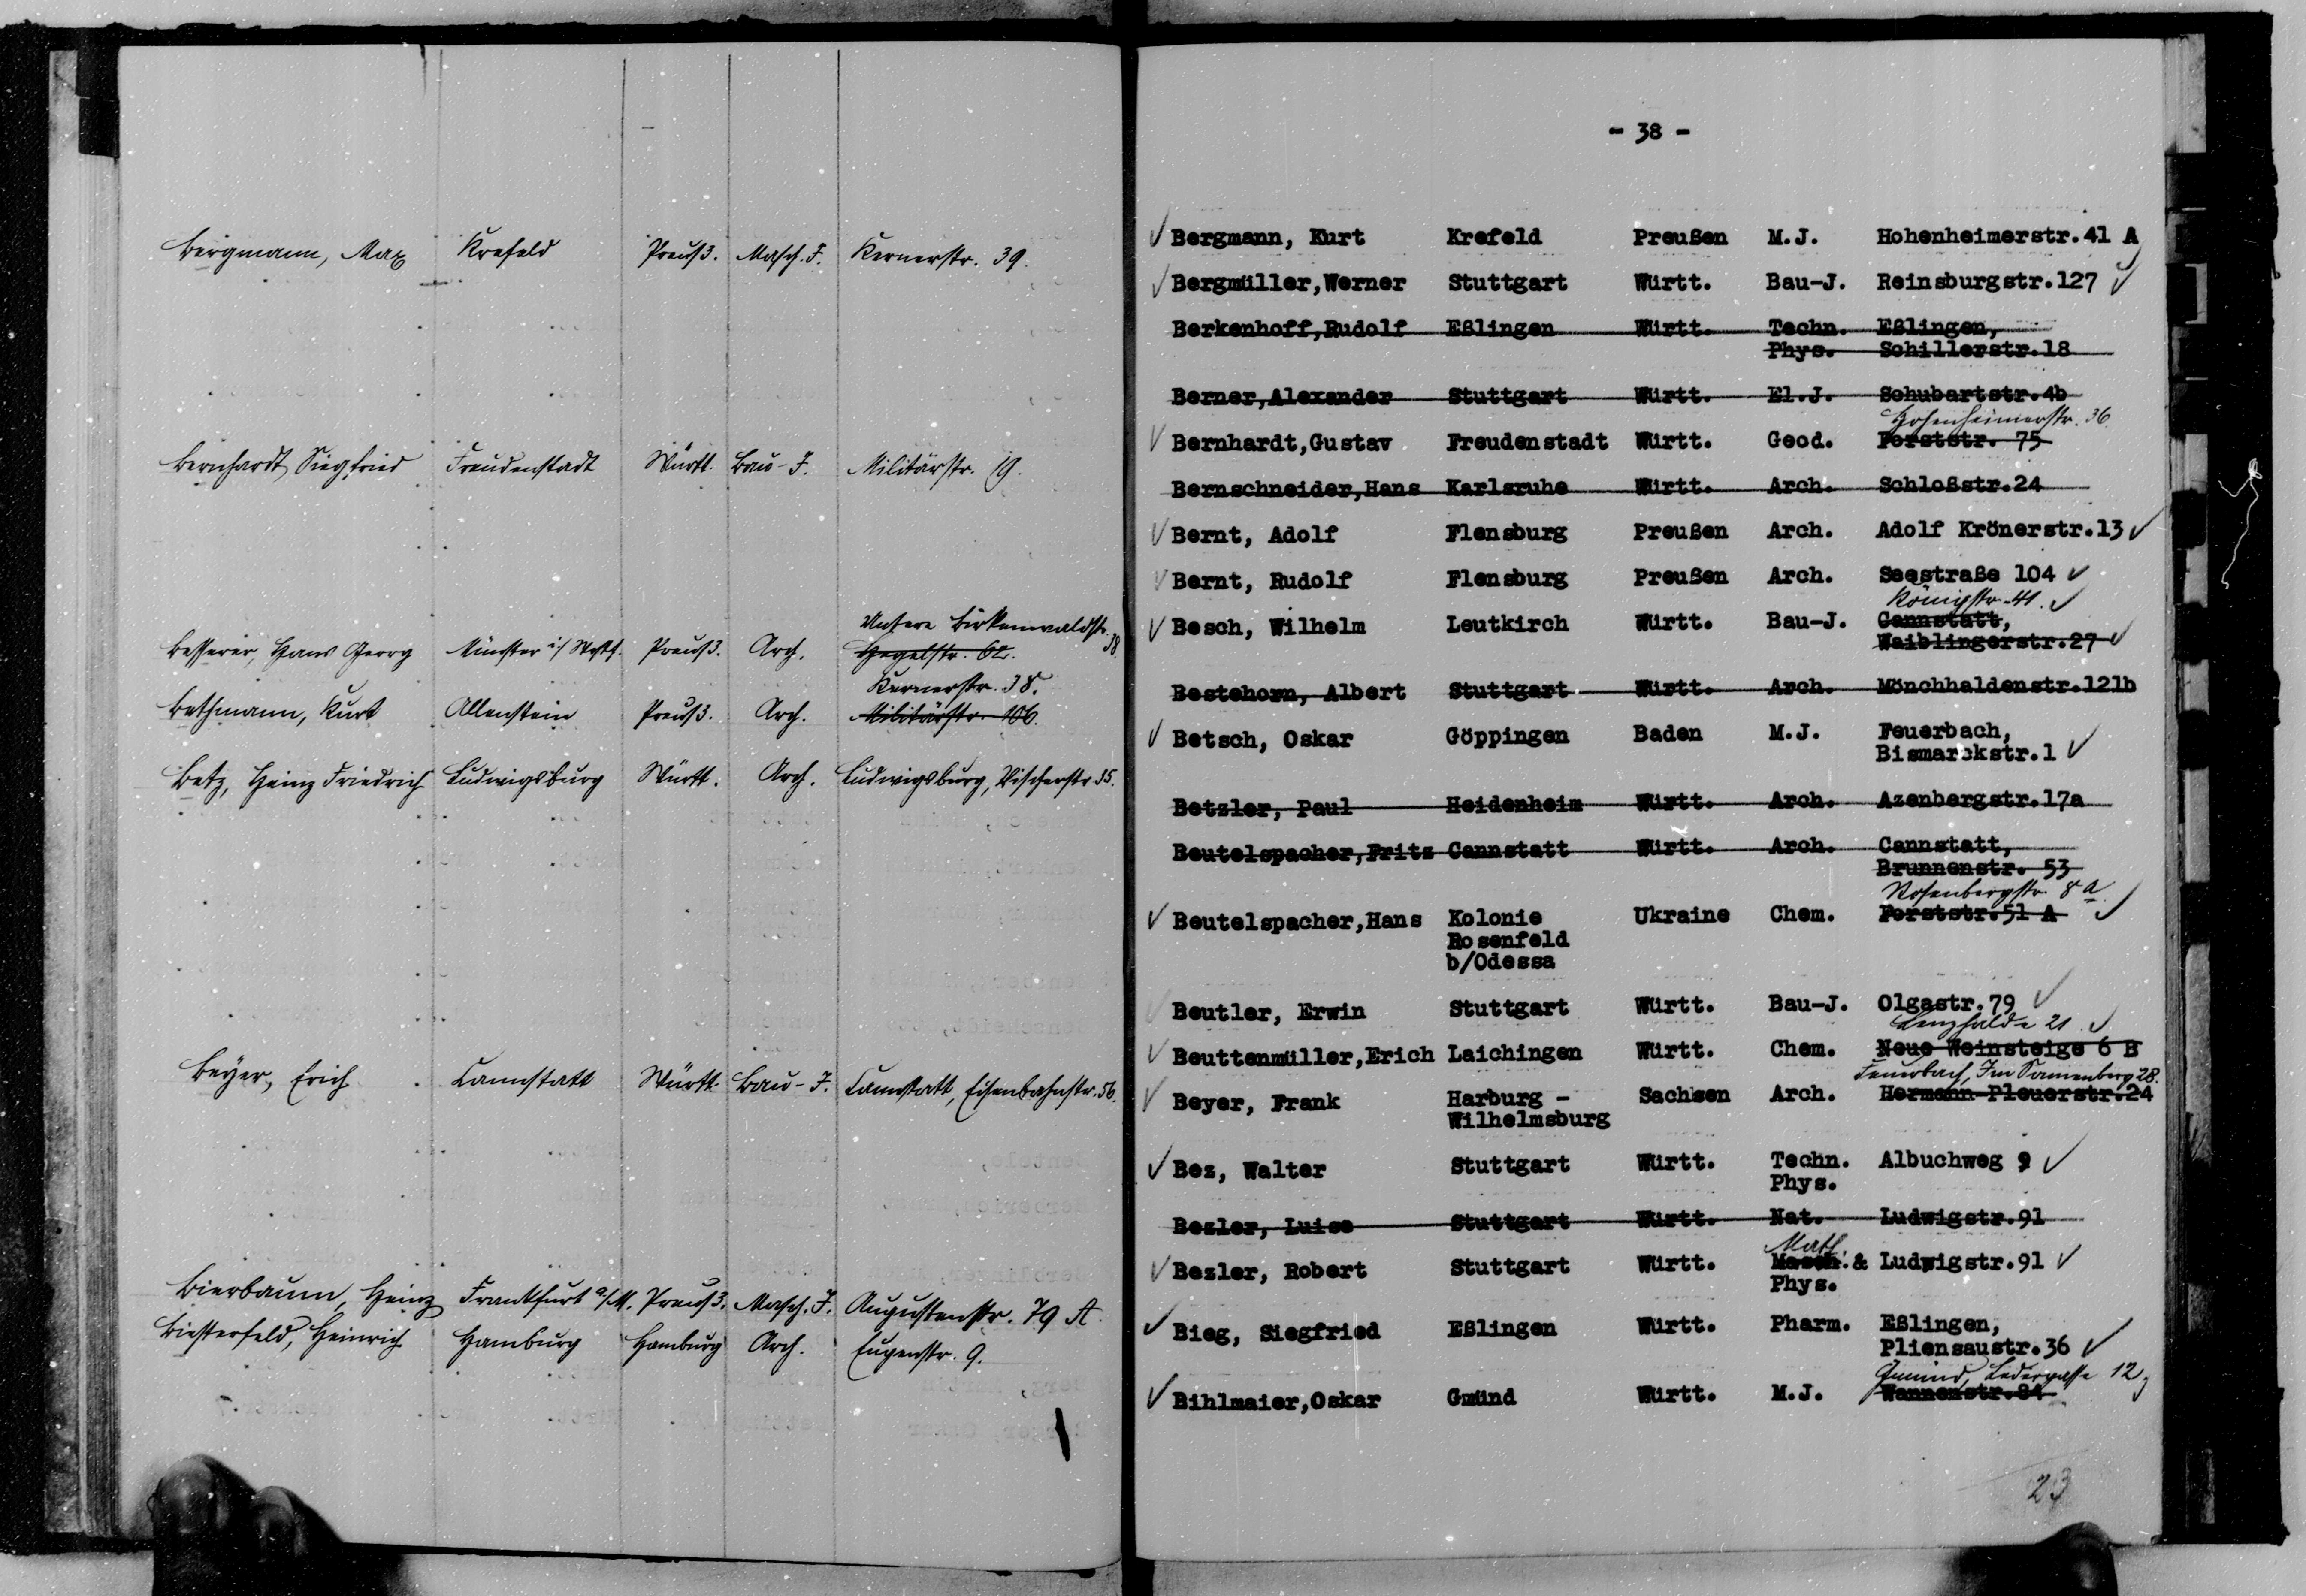 Bergmann, Max Krefeld Preuß. Masch. J. Kernerstr. 39.
Bernhardt, Siegfried Freudenstadt Württ. Bau-J. Militärstr. 19.
Untere Birkenwaldstr. 38.
Besserer, Hans Georg Münster i/ Westf. Preuß. Arch. Hegelstr. 62.
Kernerstr. 38.
Bethmann, Kurt Allenstein Preuß. Arch. Militärstr. 106.
Betz, Heinz Friedrich Ludwigsburg Württ. Arch. Ludwigsburg, Vischerstr. 35.
Beyer, Erich Cannstatt Württ. Bau-J. Cannstatt, Eisenbahnstr. 56.
Bierbaum, Heinz Frankfurt a/M. Preuß. Masch. J. Augustenstr. 79 A.
Biesterfeld, Heinrich Hamburg Hamburg Arch. Eugenstr. 9.
- 38 -
Bergmann, Kurt Krefeld Preußen M.J. Hohenheimerstr. 41 A
Bergmüller,Werner Stuttgart Württ. Bau-J. Reinsburgstr.127
Berkenhoff,Rudolf Eßlingen Württ. Techn. Eßlingen,
Phys. Schillerstr.18
Berner,Alexander Stuttgart Württ. El.J. Schubartstr.4b
Hohenheimerstr. 36.
Bernhardt,Gustav Freudenstadt Württ. Geod. Forststr. 75
Bernschneider,Hans Karlsruhe Württ. Arch. Schloßstr.24
Bernt, Adolf Flensburg Preußen Arch. Adolf Krönerstr.13
Bernt, Rudolf Flensburg Preußen Arch. Seestraße 104
Königstr. 41.
Besch, Wilhelm Leutkirch Württ. Bau-J. Cannstatt,
Waiblingerstr.27
Bestehorn, Albert Stuttgart Württ. Arch. Mönchhaldenstr.121b
Betsch, Oskar Göppingen Baden M.J. Feuerbach,
Bismarckstr.1
Betzler, Paul Heidenheim Württ. Arch. Azenbergstr.17a
Beutelspacher,Fritz Cannstatt Württ. Arch. Cannstatt,
Brunnenstr. 53
Rosenbergstr. 8 a.
Beutelspacher,Hans Kolonie Ukraine Chem. Forststr.51 A
Rosenfeld
b/Odessa
Beutler, Erwin Stuttgart Württ. Bau-J. Olgastr.79
Lenzhalde 21.
Beuttenmüller,Erich Laichingen Württ. Chem. Neue Weinsteige 6 B
Feuerbach, Im Sonnenberg 28.
Beyer, Frank Harburg - Sachsen Arch. Hermann Pleuerstr.24
Wilhelmsburg
Bez, Walter Stuttgart Württ. Techn. Albuchweg 9
Phys.
Bezler, Luise Stuttgart Württ. Nat. Ludwigstr.91
Math.
Bezler, Robert Stuttgart Württ. Masch. & Ludwigstr.91
Phys.
Bieg, Siegfried Eßlingen Württ. Pharm. Eßlingen,
Pliensaustr.36
Gmünd, Ledergasse 12
Bihlmaier,Oskar Gmünd Württ. M.J. Wannenstr.84
23